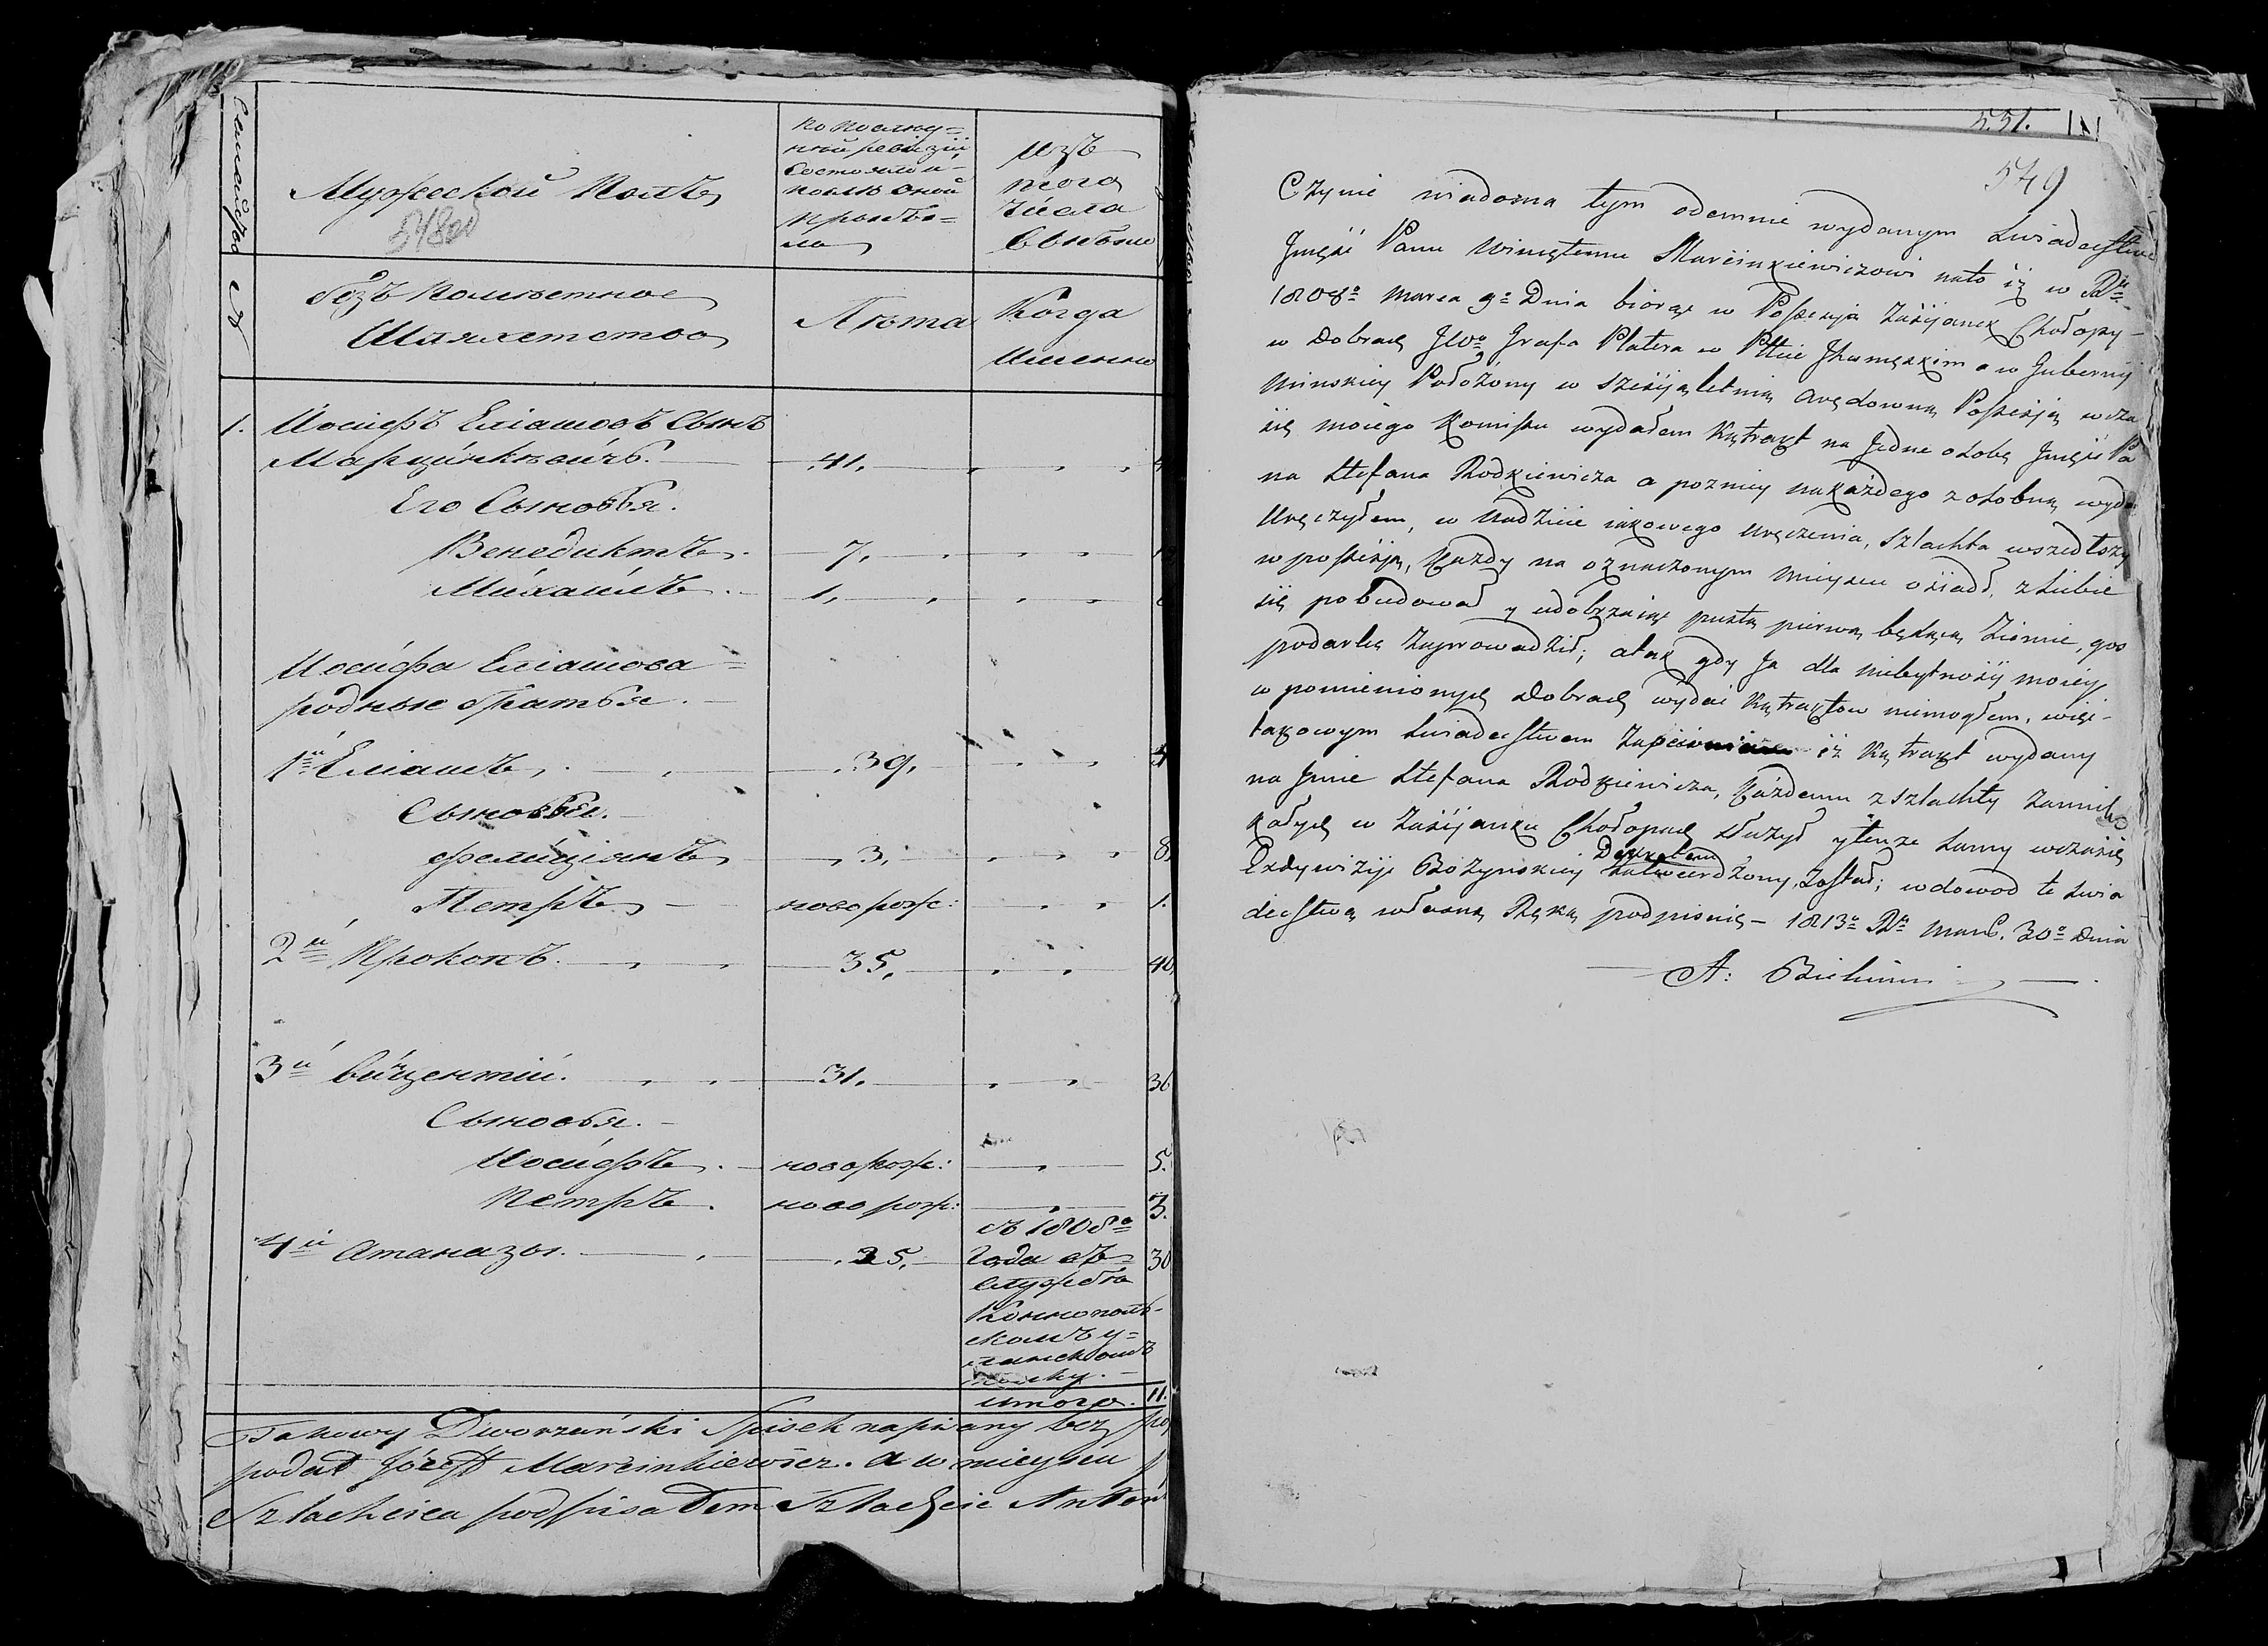 Семейство
Мужеской Полъ
548об
по послед=
ней ревизіи
состояло и
после оной
прибы=
ло
изъ
того
числа
выбыло
№
Безъ поместное
Шляхетство
Лета
Когда
именно
1. Иосифъ Еліашовъ Сынъ
Марцинкевичъ. 41. 4
Его Сыновья.
Бенедиктъ. 7.
Михаилъ. 1.
Иосифа Еліашова
родные братья.
1й Еліашъ. 39. 4
Сыновья.
Фелиціянъ 3. 8
Петръ новорож: 1.
2й Прокопъ. 35. 40
3й Вицентій. 31. 36
Сыновья.
Иосифъ. новорож: 5.
Петръ. новорож: 3.
4й Атаназы. 25. съ 1808го 30
года въ
службе
Коннополь-
скомъ у=
ланскомъ
полку.
итого. 11.
Takowy Dworzański Spisek napisany bez po
podał Józeff Marcinkiewicz. a w mieyscu
Szlachcica podpisałem Szlachcic Anton
551.
549
Czynie wiadomo tym odemnie wydanym Swiadectwe
Jmęści Panu Wincętemu Marcinkiewiczowi nato iż w Rku
1808o Marca 9o Dnia biorąc w Possesyą Zaścianek Chołopy-
w Dobrach JWo Grafa Platera w Pttcie Jhumeńskim a w Gubernij
Minskiey Położony w sześcioletnią Arędowną Possesją w cza
sie moiego Komissu wydałem Kątrakt na Jedne osobę Jmęści Pa
na Stefana Rodkiewicza a pozniey na każdego z osobna wyda
Uręczyłem, w Nadzieie iakowego uręczenia, Szlachta wszedłszy
w possesją, Każdy na oznaczonym Mieyscu osiadł, z siebie
się pobudował y udobrzaiąc pustą pierwą będącą Ziemie, gos
podarkę Zaprowadził; a tak gdy Ja dla niebytności moiey
w pomienionych Dobrach wydać Kątraktow niemogłem, więc-
takowym Swiadectwem Zapewniam iż Kątrakt wydany
na Jmie Stefana Rodkiewicza, Każdemu z Szlachty Zamiesz
kałych w Zaścianku Chołopach służył y tenże samy w czasie
Exdywizyi Bożynskiey Dekretem Zatwierdzony, Został; w dowod te swia
dectwą własną Ręką podpisuię - 1813o Rku Marc. 30o Dnia
A: